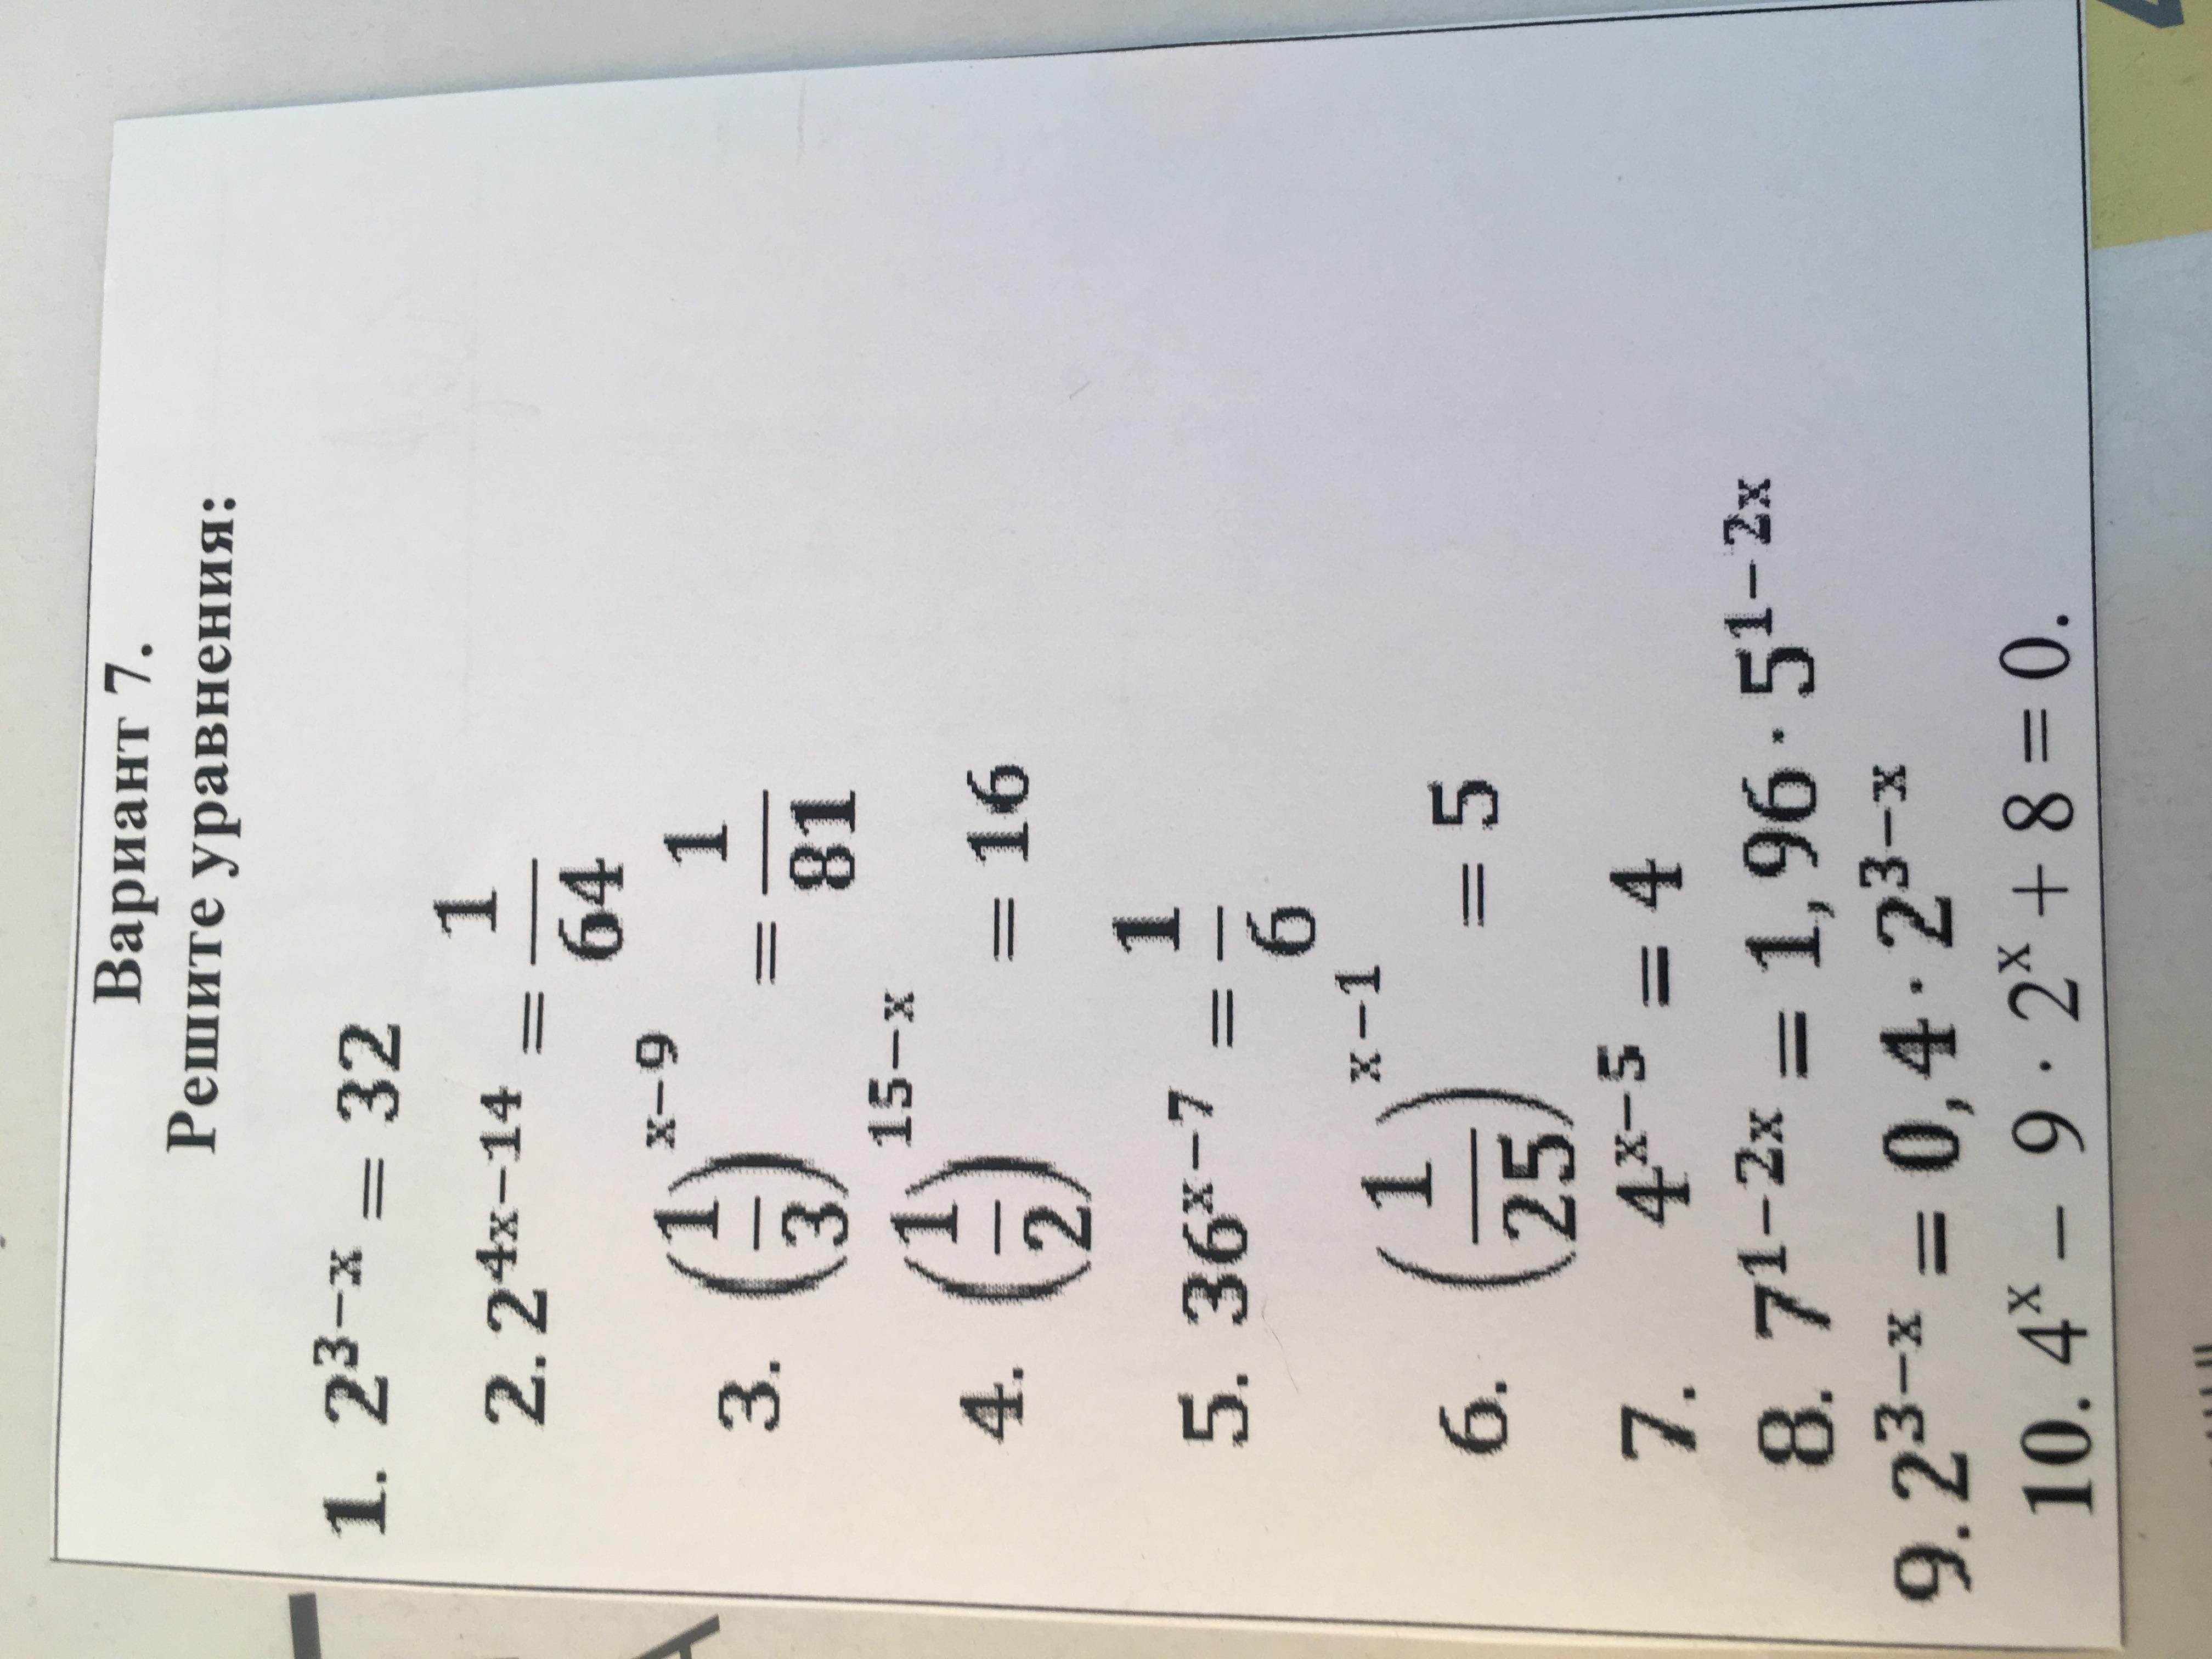 Вариант 7.
Решите уравнения:
1. 2^(3−x) = 32
2. 2^(4x−14) = 1/64
3. (1/3)^(x−9) = 1/81
4. (1/2)^(15−x) = 16
5. 36^(x−7) = 1/6
6. (1/25)^(x−1) = 5
7. 4^(x−5) = 4
8. 7^(1−2x) = 1,96 · 5^(1−2x)
9. 2^(3−x) = 0,4 · 2^(3−x)
10. 4^x − 9 · 2^x + 8 = 0.